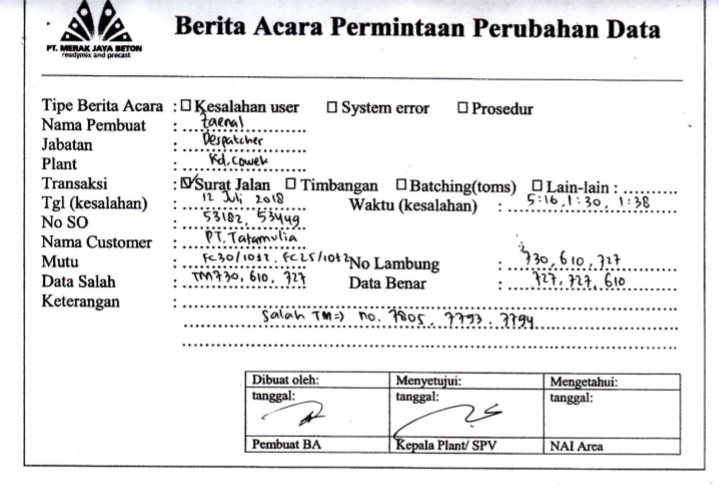 PT. MERAK JAYA BETON
readymix and precast
Berita Acara Permintaan Perubahan Data
Tipe Berita Acara : Kesalahan user System error Prosedur
Nama Pembuat : Zaenal
Jabatan : Despatcher
Plant : Kd. Cowek
Transaksi : Surat Jalan Timbangan Batching(toms) Lain-lain : .........
Tgl (kesalahan) : 12 Juli 2018 Waktu (kesalahan) : 5:16, 1:30, 1:38
No SO : 53182, 53449
Nama Customer : PT. Tatamulia
Mutu : FC30/10±2, FC25/10±2 No Lambung : 730, 610, 727
Data Salah : TM730, 610, 727 Data Benar : 727, 727, 610
Keterangan :
Salah TM => no. 7805, 7793, 7794
Dibuat oleh: Menyetujui: Mengetahui:
tanggal: tanggal: tanggal:
Pembuat BA Kepala Plant/ SPV NAI Area